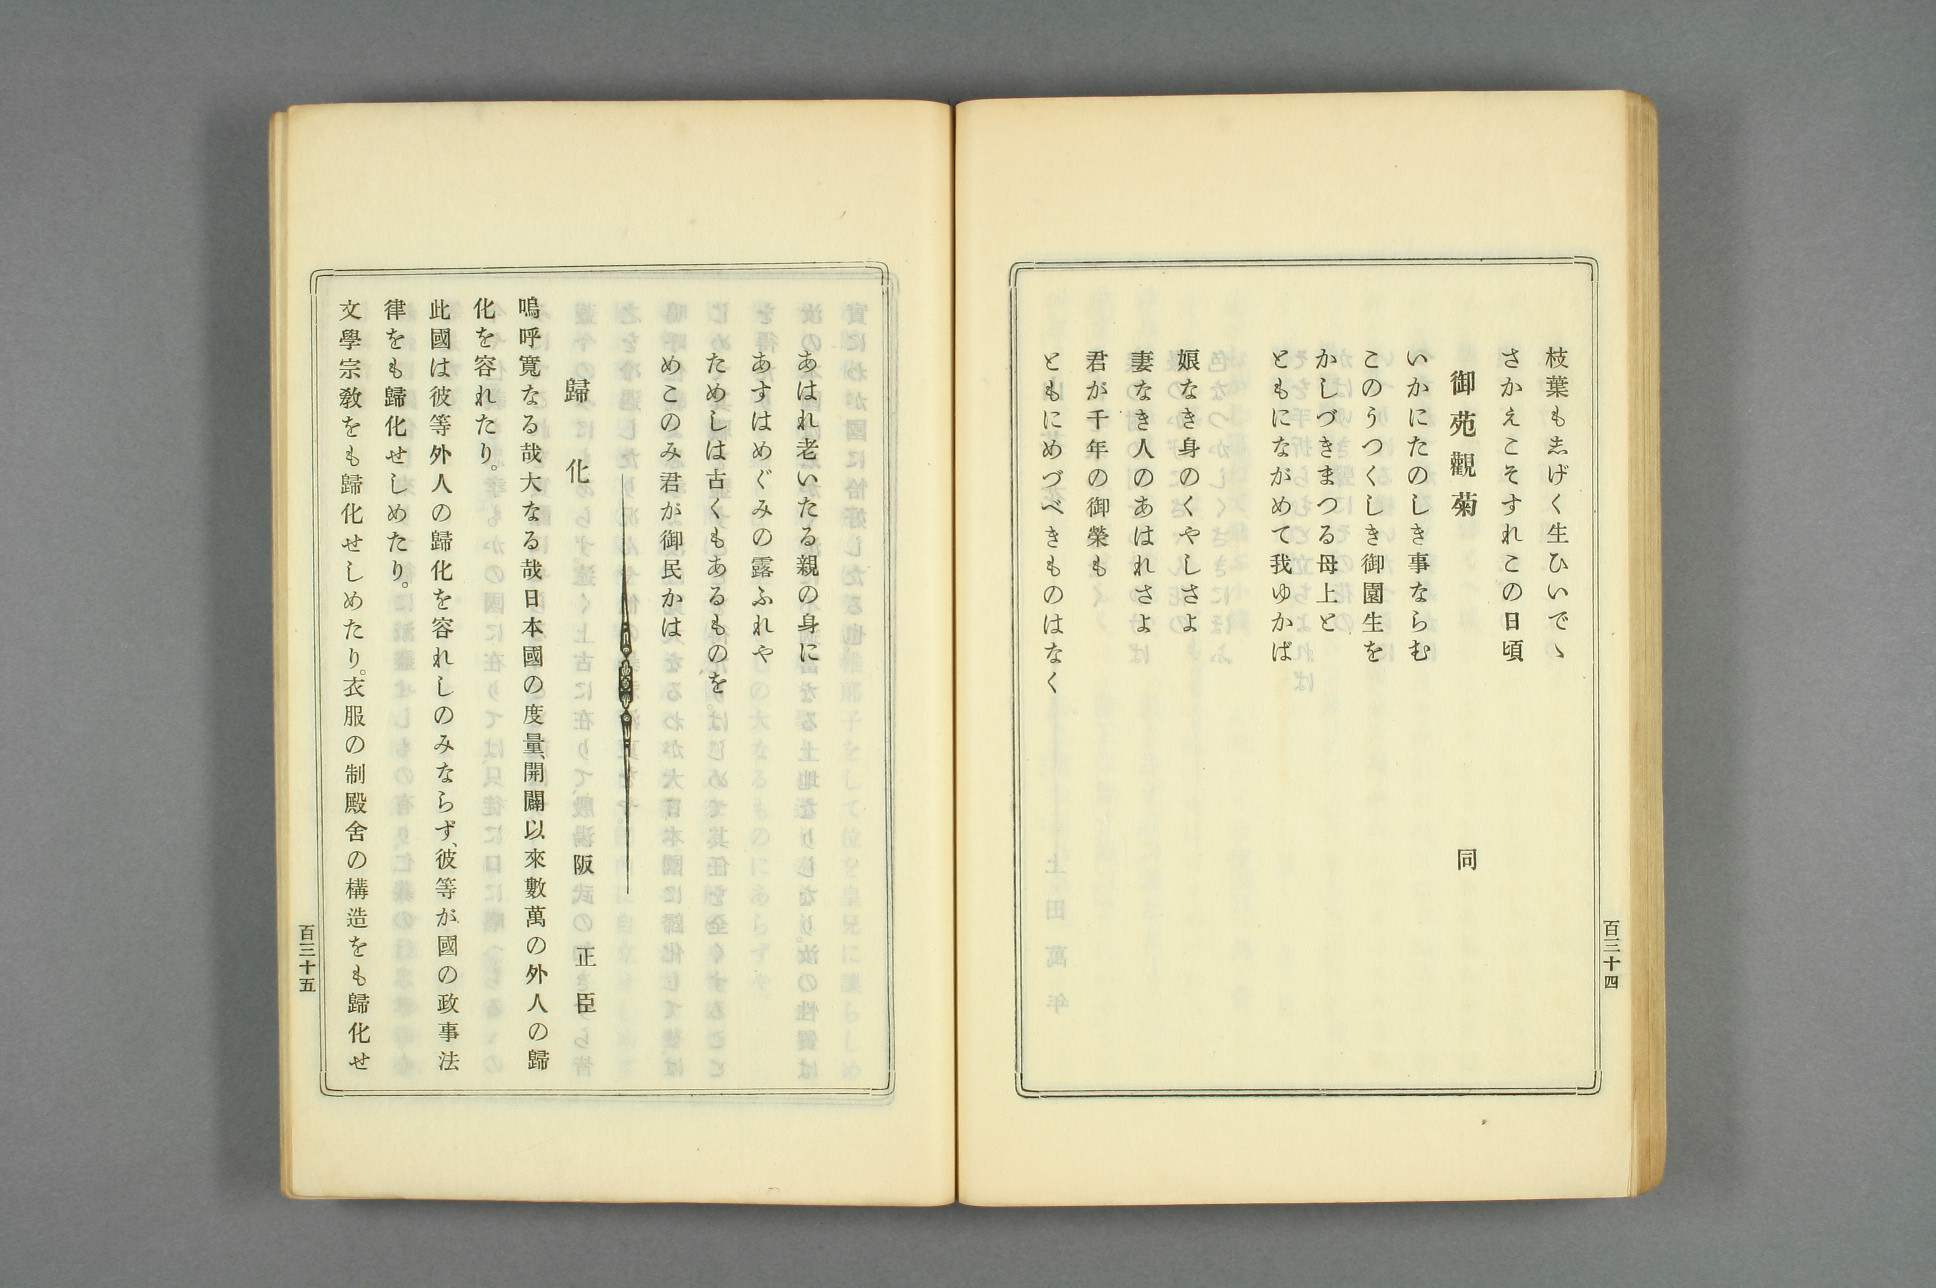 枝葉もゑげく生ひいでゝ
さかえこそすれこの日頃
御苑觀菊　同
いかにたのしき事ならむ
このうつくしき御園生を
かしづきまつる母上と
ともにながめて我ゆかば
娘なき身のくやしさよ
妻なき人のあはれさよ
君が千年の御榮も
ともにめづべきものはなく
百三十四
あはれ老いたる親の身に
あすはめぐみの露ふれや
ためしは古くもあるものを
めこのみ君が御民かは
歸化　阪正臣
嗚呼寛なる哉大なる哉日本國の度量、開闢以來數萬の外人の歸
化を容れたり。
此國は彼等外人の歸化を容れしのみならず、彼等が國の政事法
律をも歸化せしめたり。
文學宗教をも歸化せしめたり。衣服の制殿舍の構造をも歸化せ
百三十五